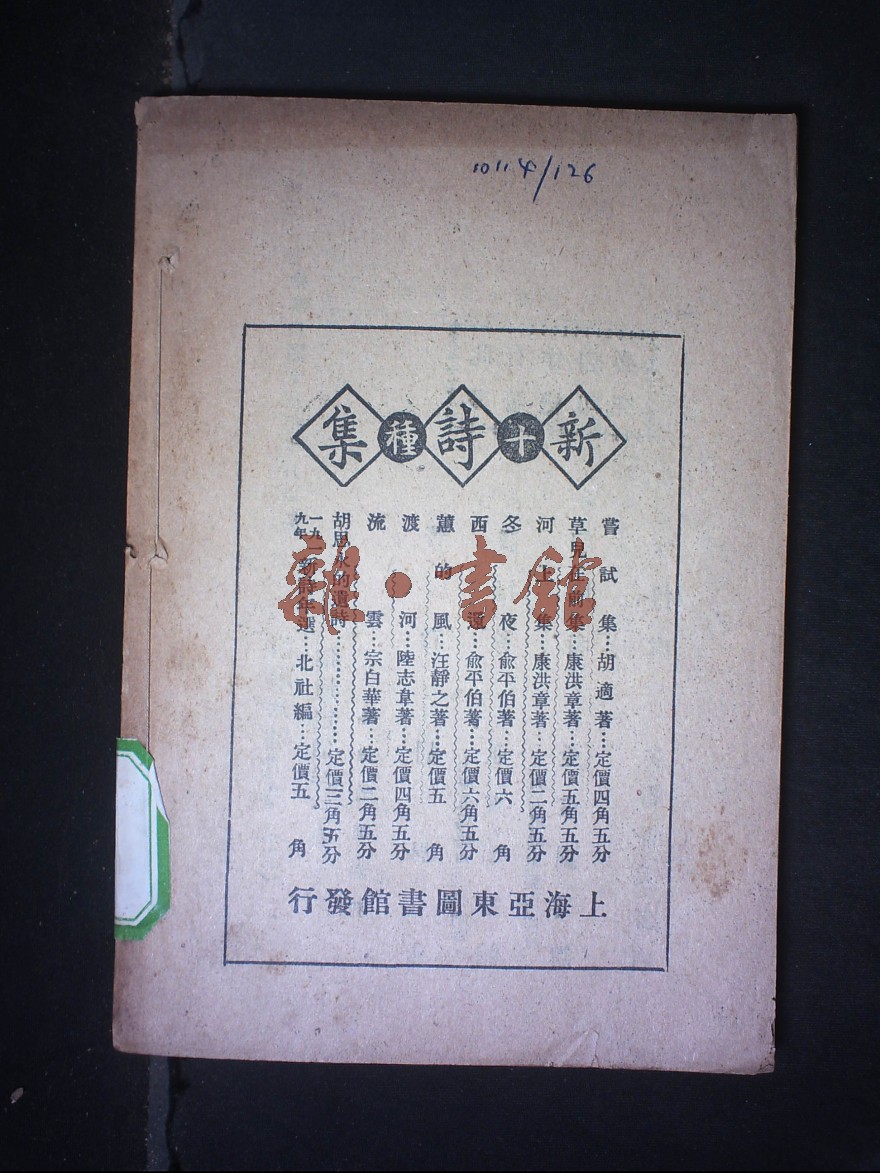 10114/126
新十詩種集
嘗試集…胡適著…定價四角五分
草兒在前集…康洪章著…定價五角五分
河上集…康洪章著…定價二角五分
冬夜…俞平伯著…定價六角
西還…俞平伯著…定價六角五分
蕙的風…汪靜之著…定價五角
渡河…陸志韋著…定價四角五分
流雲…宗白華著…定價二角五分
胡思永的遺詩…………定價三角五分
一九一九年新詩年選…北社編…定價五角
上海亞東圖書館發行
雜·書館